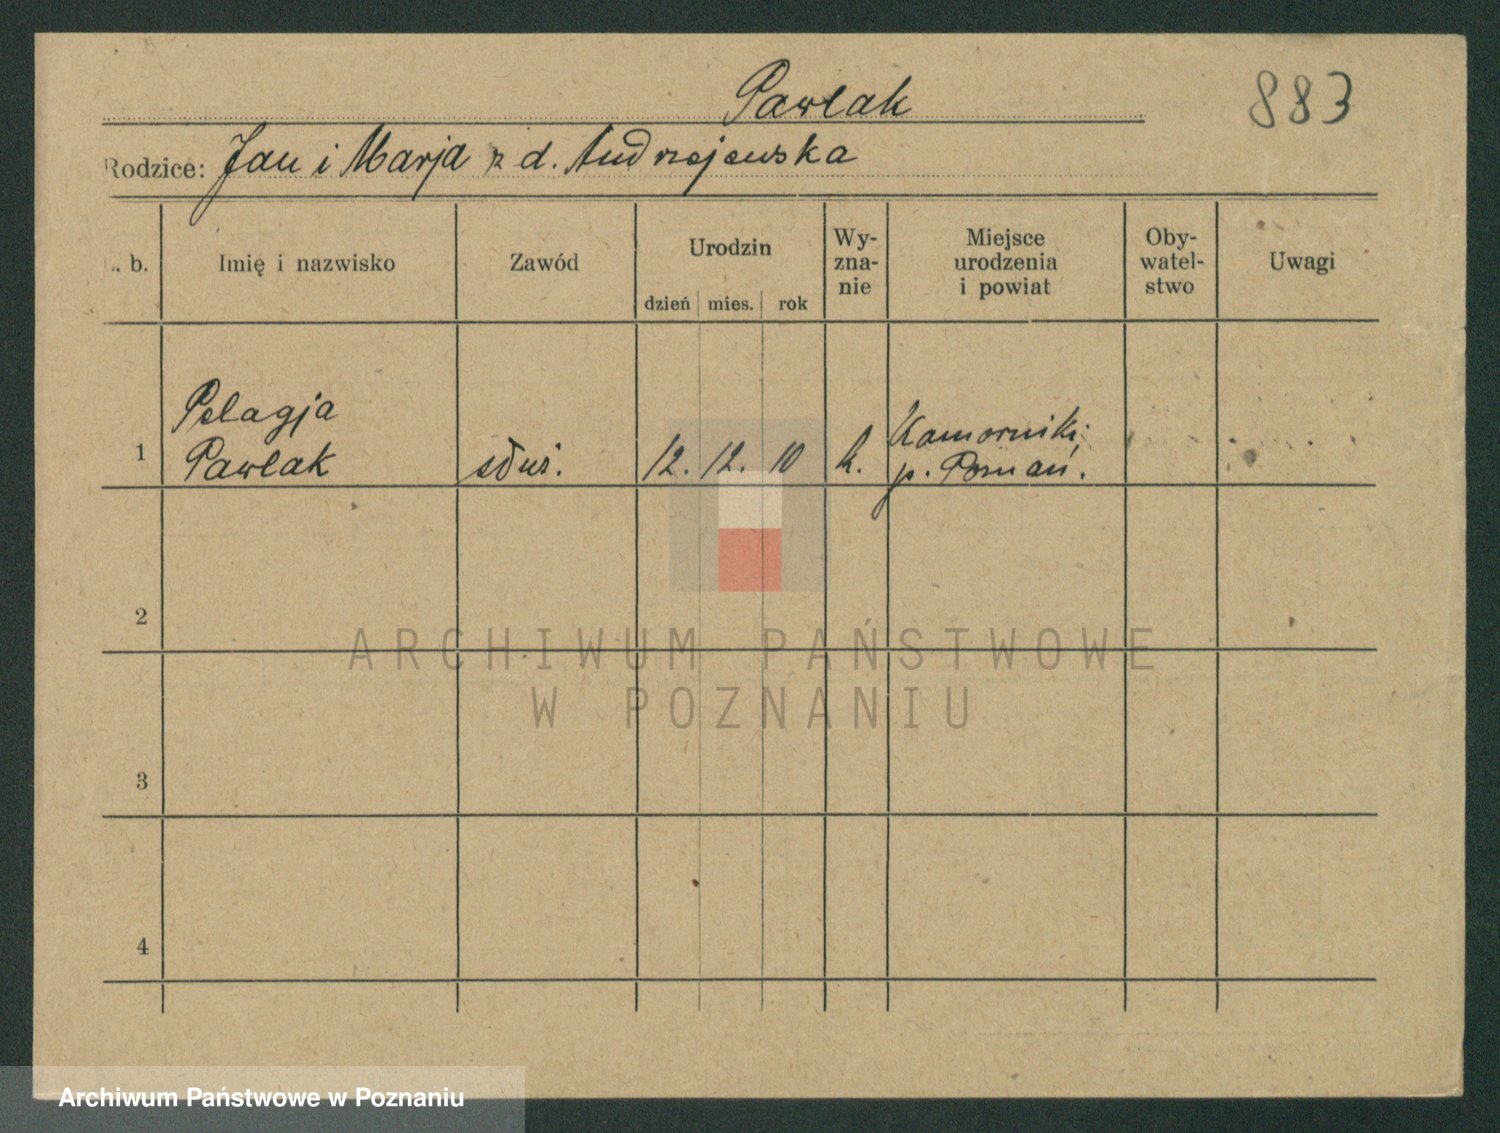 Pawlak
883
Rodzice: Jan i Marja z d. Andrzejewska
L. b.
Imię i nazwisko
Zawód
Urodzin
dzień mies. rok
Wy-
zna-
nie
Miejsce
urodzenia
i powiat
Oby-
watel-
stwo
Uwagi
1
Pelagja
Pawlak
służ.
12. 12. 10
k.
Komorniki
p. Poznań.
2
3
4
ARCHIWUM PAŃSTWOWE
W POZNANIU
Archiwum Państwowe w Poznaniu